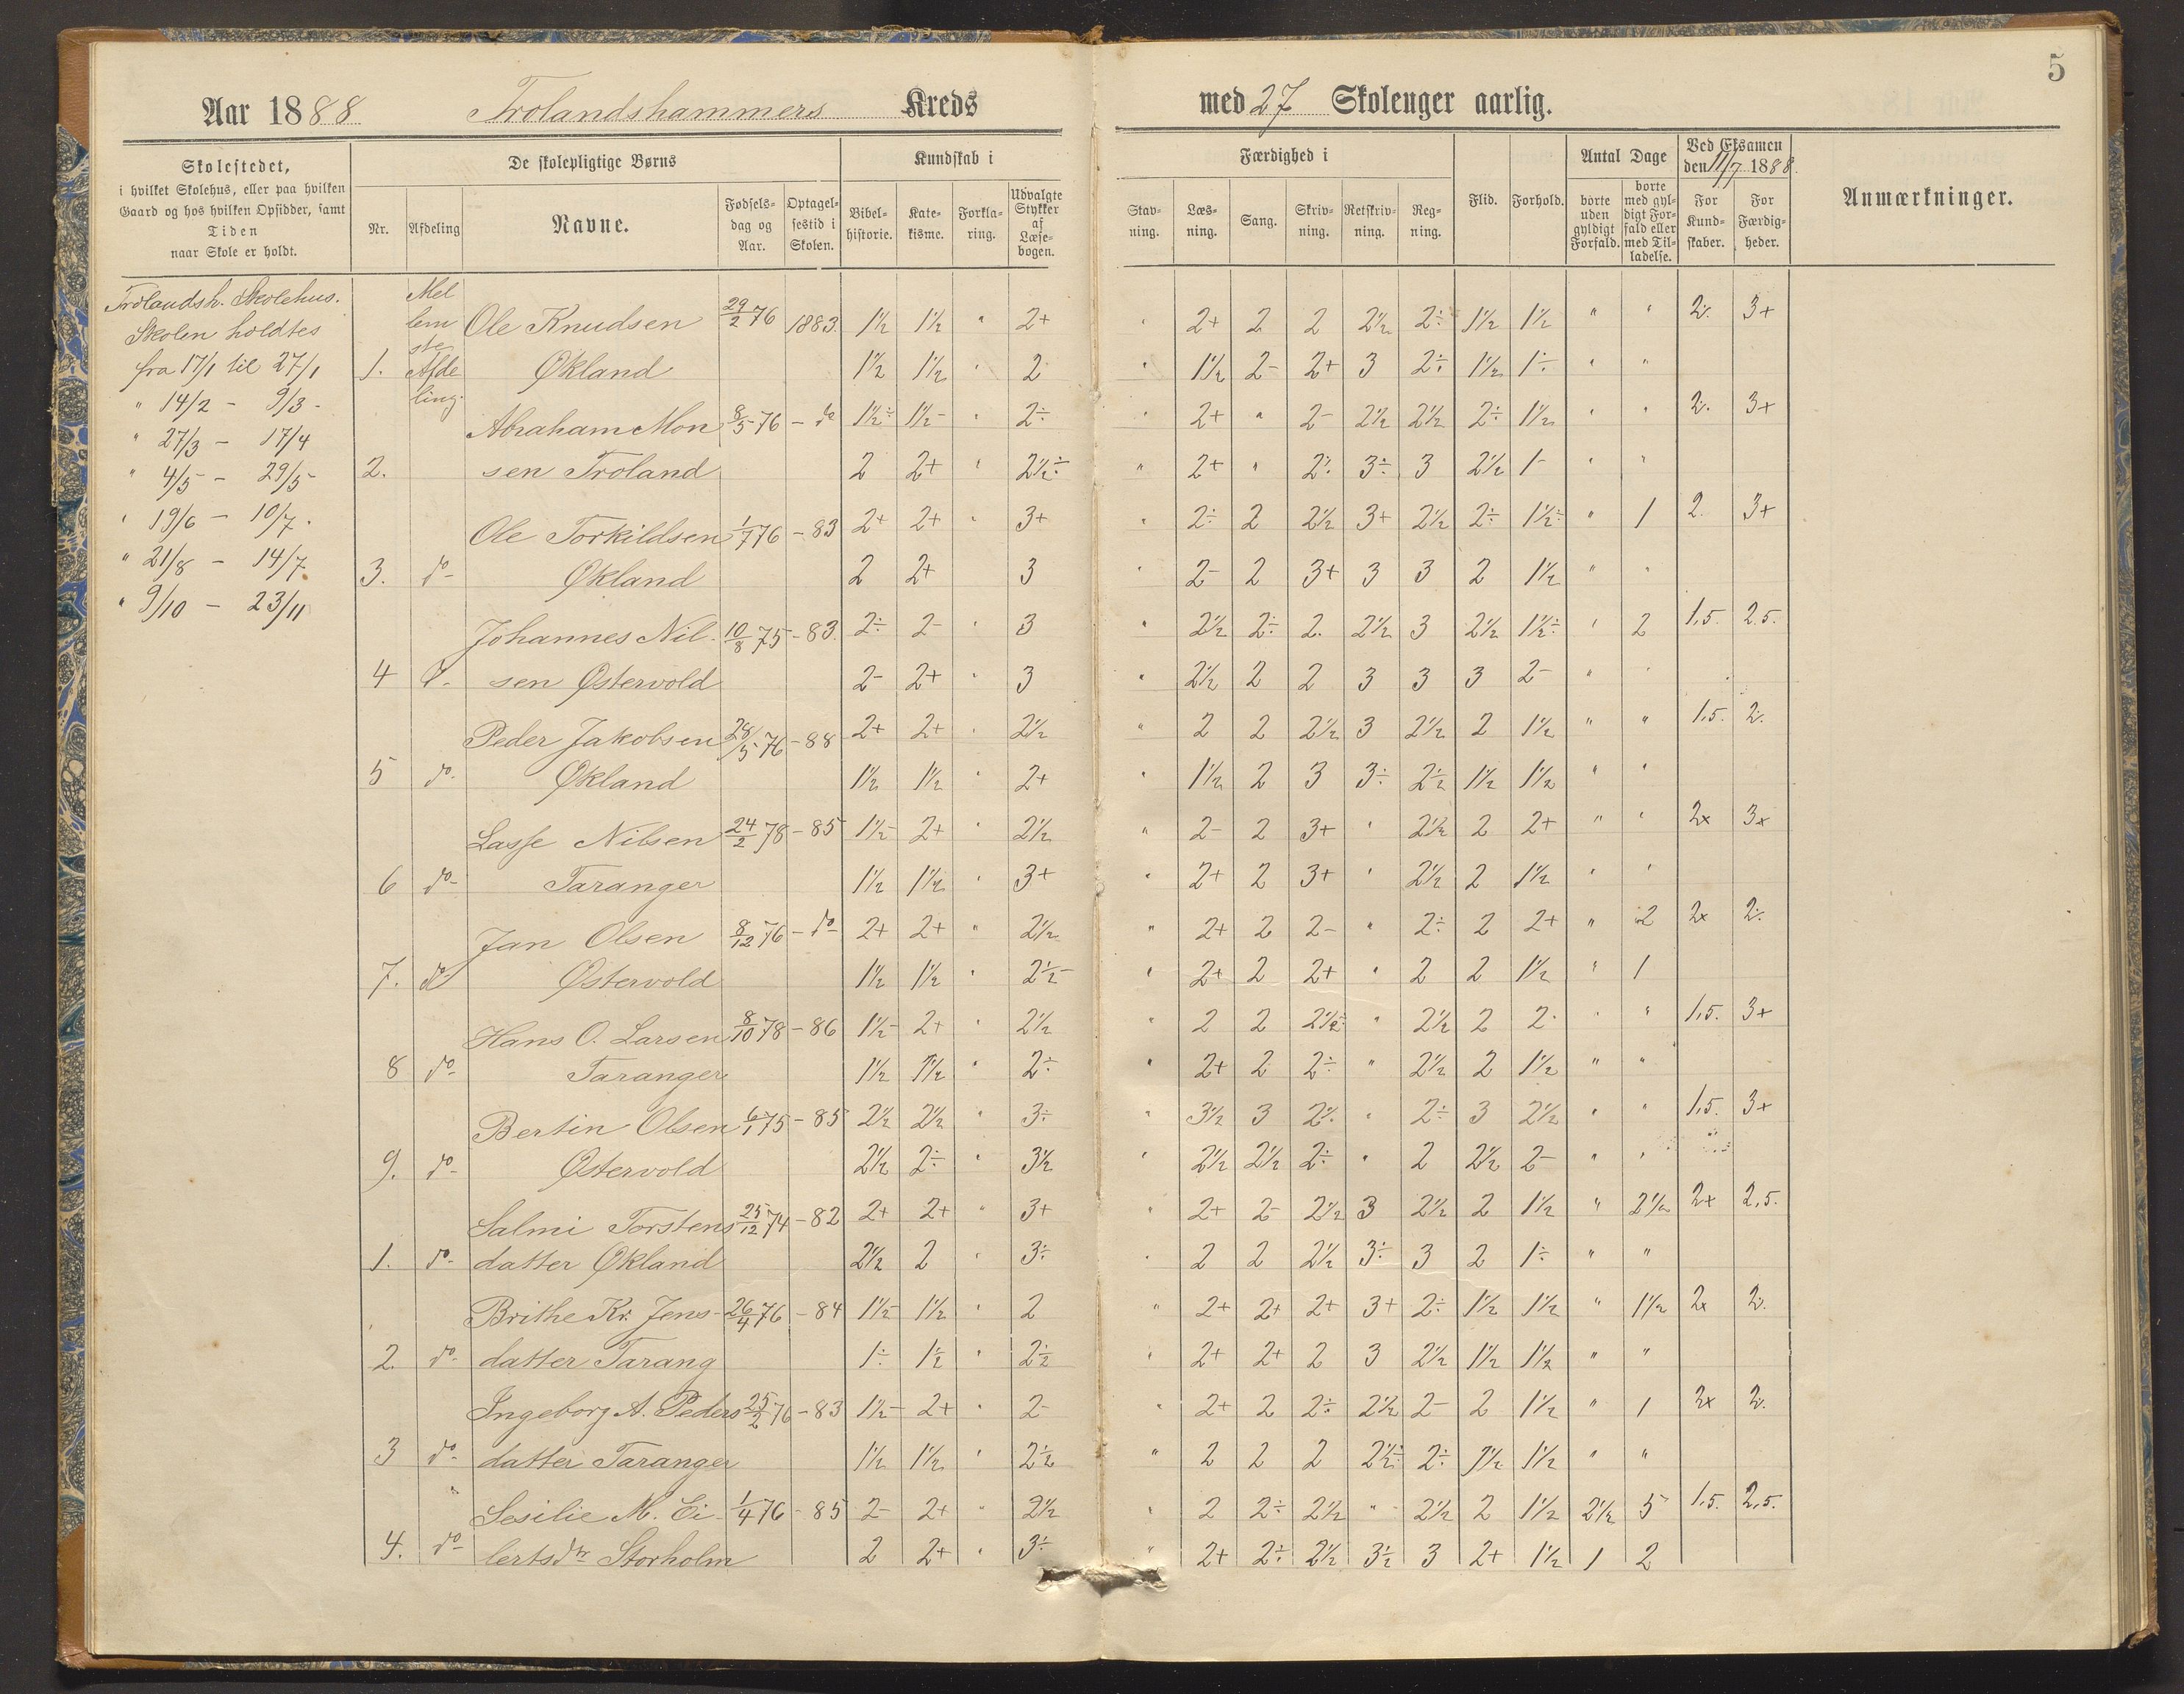 5
Aar 1888 Trolandshammers Kreds med 27 Skoleuger aarlig.
Skolestedet,
i hvilket Skolehus, eller paa hvilken
Gaard og hos hvilken Opsidder, samt
Tiden
naar Skole er holdt.
De skolepligtige Børns
Nr. Afdeling Navne. Fødselsdag og Aar. Optagelsestid i Skolen.
Kundskab i
Bibelhistorie. Katekisme. Forklaring. Udvalgte Stykker af Læsebogen.
Færdighed i
Stavning. Læsning. Sang. Skrivning. Retskrivning. Regning.
Flid. Forhold.
Antal Dage
borte uden gyldigt Forfald. borte med gyldigt Forfald eller med Tilladelse.
Ved Eksamen den 11/7 1888.
For Kundskaber. For Færdigheder.
Anmærkninger.
Trolandsh. Skolehus.
Skolen holdtes
fra 17/1 til 27/1
" 14/2 - 9/3 -
" 27/3 - 17/4
" 4/5 - 29/5
" 19/6 - 10/7.
" 21/8 - 14/7
" 9/10 - 23/11
Mellemste Afdeling.
Ole Knudsen 29/2 76 1883. 1½ 1½ " 2+ " 2+ 2 2 2½ 2÷ 1½ 1½ " " 2÷ 3+
1. Økland 1½ 1½ " 2 " 1½ 2- 2+ 3 2÷ 1½ 1÷ " "
Abraham Mon 8/5 76 - do 1½÷ 1½- " 2÷ " 2+ " 2- 2½ 2½ 2÷ 1½ " " 2÷ 3+
2. sen Troland 2 2+ " 2½÷ " 2+ " 2÷ 3÷ 3 2½ 1- " "
Ole Torkildsen 1/7 76 - 83 2+ 2+ " 3+ " 2÷ 2 2½ 3+ 2½ 2÷ 1½÷ " 1 2. 3+
3. do Økland 2 2+ 3 " 2- 2 3+ 3 3 2 1½ " "
Johannes Nil- 10/8 75 - 83. 2÷ 2- " 3 " 2½ 2÷ 2. 2½ 3 2½ 1½÷ " 2 1,5. 2.5.
4 do sen Østervold 2- 2+ " 3 " 2½ 2 2 3 3 3 2- " "
Peder Jakobsen 28/5 76 - 88 2+ 2+ " 2½ " 2 2 2½ 3 2½ 2 1½ " " 1,5. 2÷
5 do Økland 1½ 1½ " 2+ " 1½ 2 3 3÷ 2½ 1½ 1½ " "
Lasse Nilsen 24/2 78 - 85 1½- 2+ " 2½ " 2- 2 3+ " 2½ 2 2+ " " 2x 3x
6 do Taranger 1½ 1½ " 3+ " 2+ 2 3+ " 2½ 2 1½ " "
Jan Olsen 8/12 76 - do 2+ 2+ " 2½ " 2+ 2 2- " 2÷ 2 2+ " 2 2x 2÷
7. do Østervold 1½ 1½ " 2½- " 2+ 2 2+ " 2 2 1½ " 1
Hans O. Larsen 8/10 78 - 86 1½- 2+ " 2½ " 2 2 2½÷ " 2½ 2 2- " " 1,5. 3+
8 do Taranger 1½ 1½ " 2÷ " 2+ 2 2÷ " 2½ 2 1½ " "
Bertin Olsen 6/1 75 - 85 2½ 2½ " 3÷ " 3½ 3 2÷ " 2÷ 3 2½ " " 1,5. 3+
9. do Østervold 2½ 2÷ " 3½ " 2½ 2½ 2÷ " 2 2½ 2- " "
Salmi Torstens 25/12 74 - 82 2+ 2+ " 3+ " 2+ 2- 2½ 3 2½ 2 1½ " 2½ 2x 2,5.
1. do datter Økland 2½ 2 " 3÷ " 2 2 2½ 3÷ 3 2 1÷ " "
Brithe Kr. Jens- 26/4 76 - 84 1½- 1½ " 2 " 2+ 2+ 2+ 3+ 2÷ 1½ 1½ " 1½ 2x 2÷
2. do datter Tarang 1÷ 1½ " 2½ " 2+ 2+ 2 3 2½ 1½ 1½ " "
Ingeborg A. Peders 25/2 76 - 83 1½- 2+ " 2- " 2+ 2 2÷ 2½ 2- 2 1½ " 1 2x 2÷
3 do datter Taranger 1½ 1½ " 2½ " 2 2 2 2½÷ 2÷ 1½ 1½ " "
Sesilie M. Ei- 1/4 76 - 85 2- 2+ " 2½ " 2 2÷ 2½ " 2½ 2 1½ 2½ 5 1,5. 2,5.
4. do lertsdtr Storholm 2 2+ " 3÷ " 2+ 2÷ 2½ 3½ 3 2+ 1½ 1 2